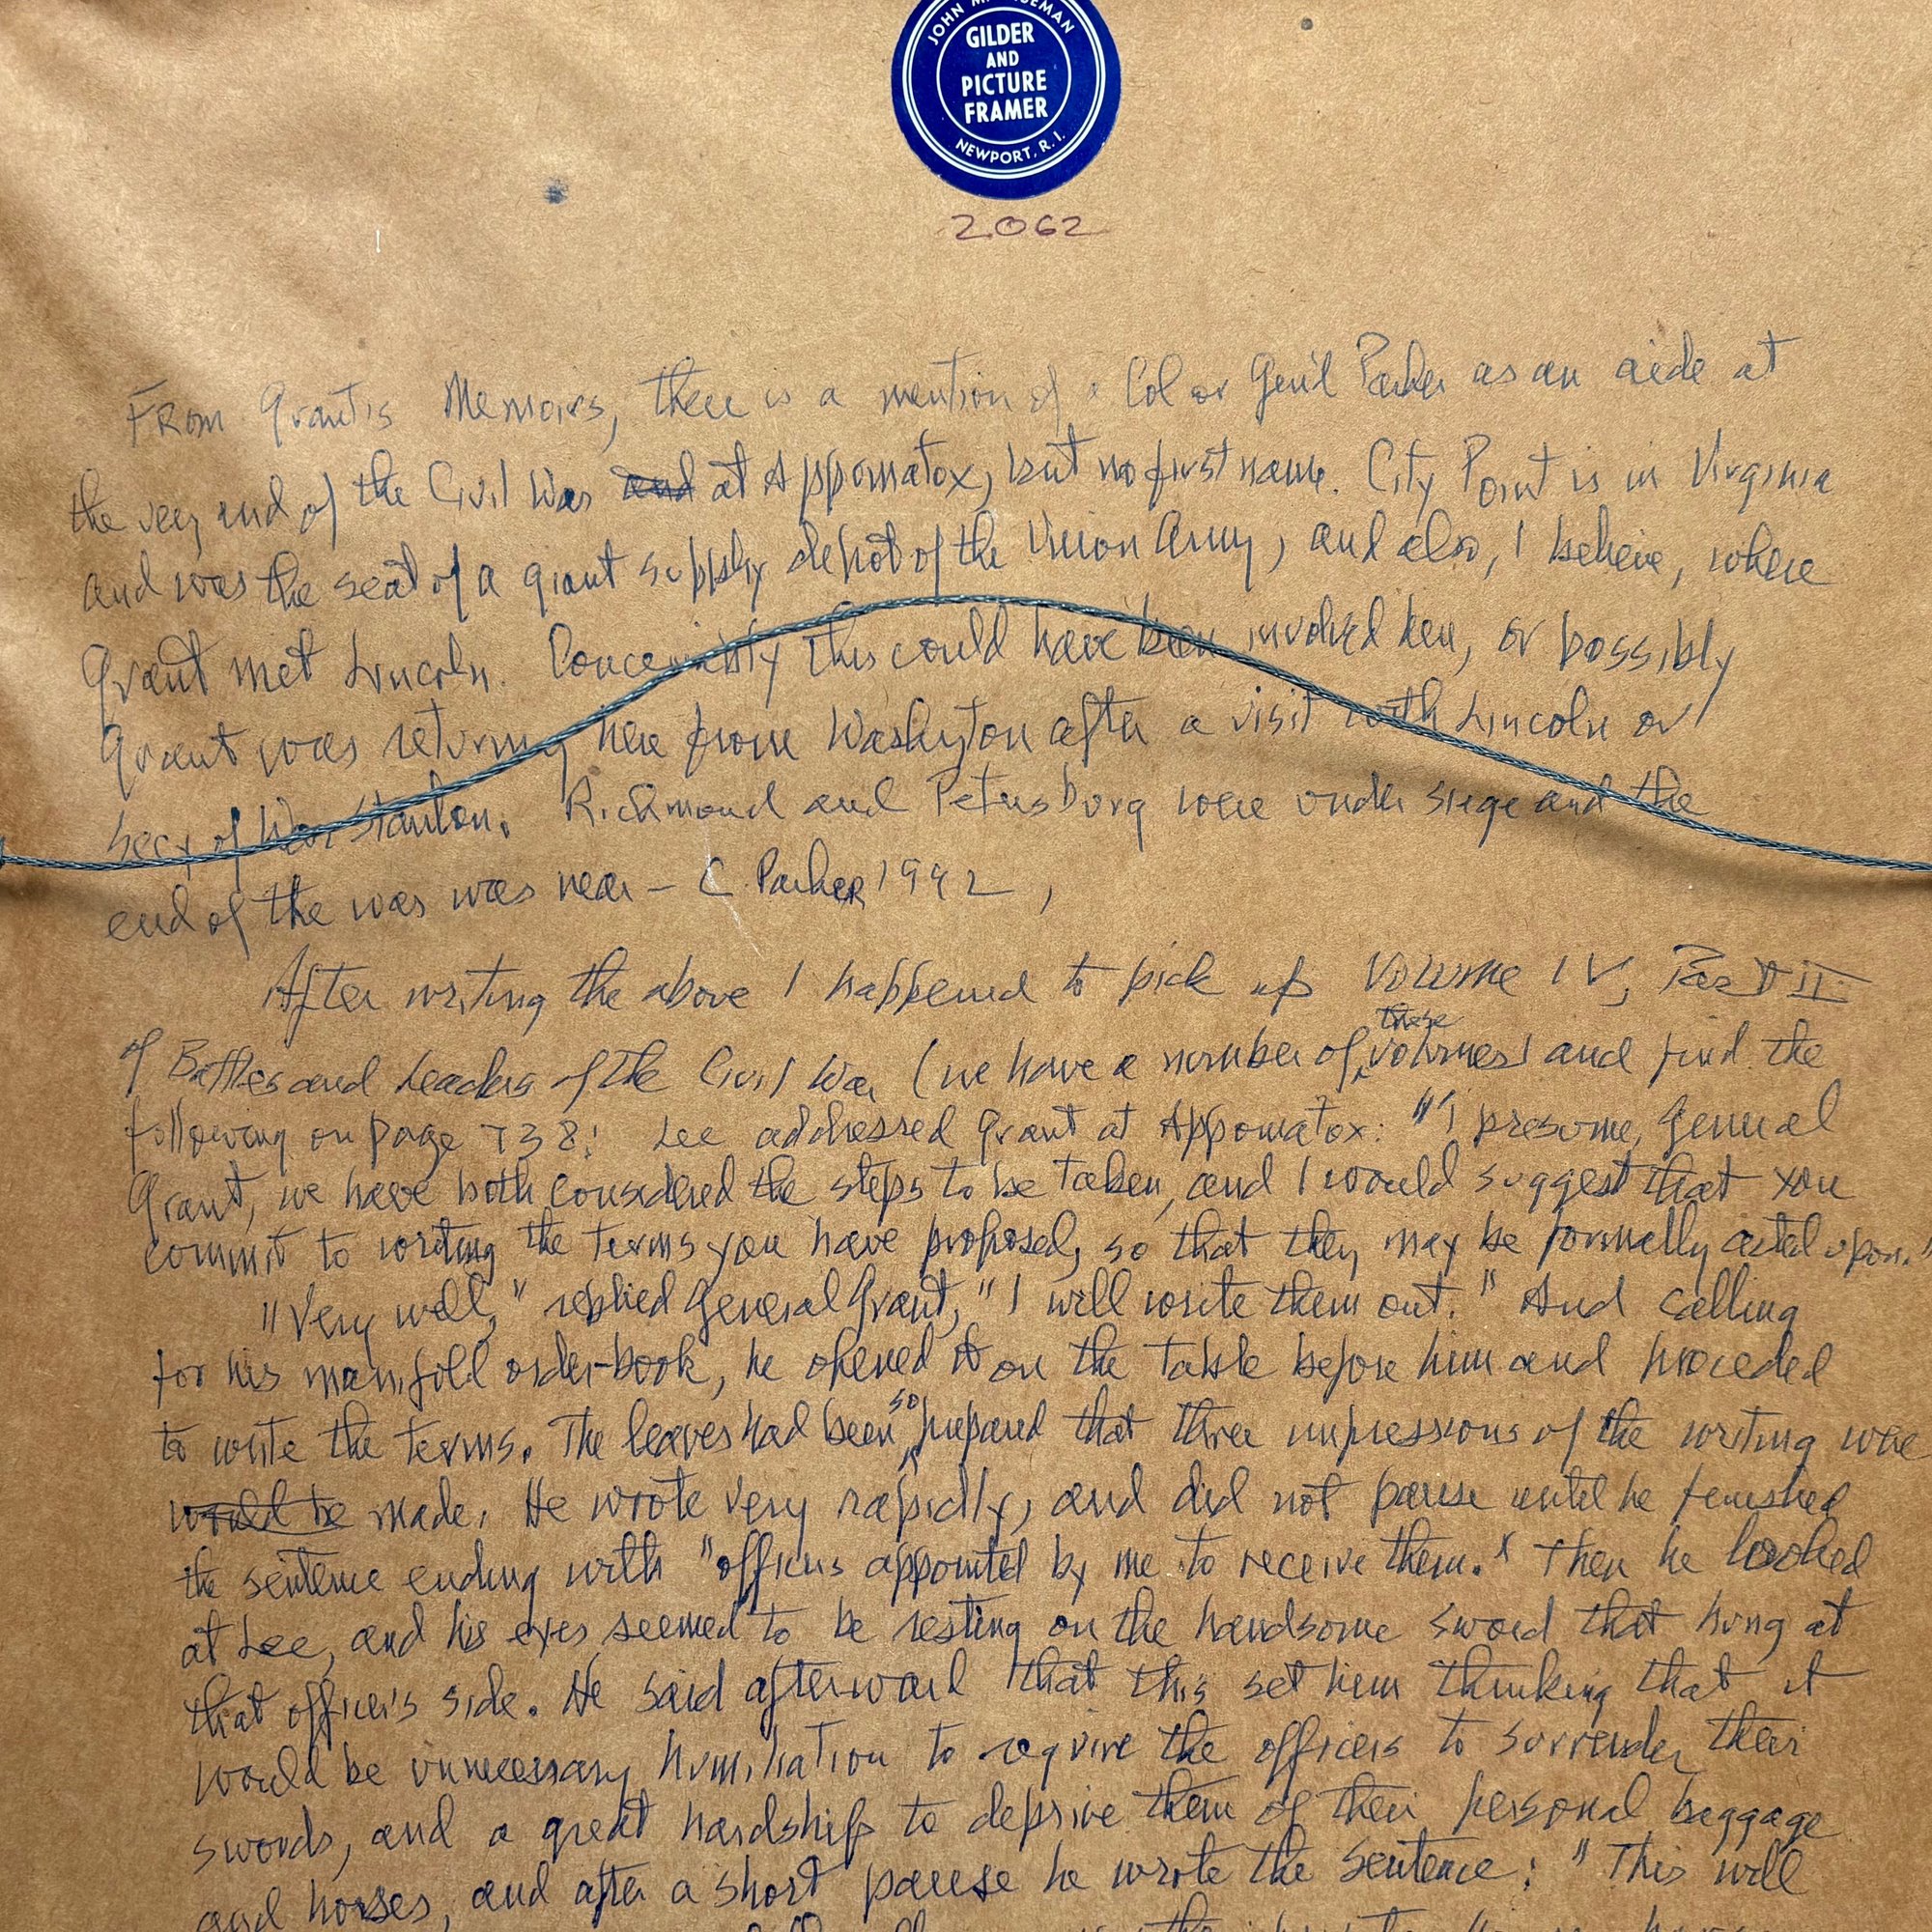 JOHN
GILDER
AND
PICTURE
FRAMER
NEWPORT, R. I.
2062
From Grant's Memoirs, there is a mention of a Col or Gen'l Parker as an aide at
the very end of the Civil War and at Appomatox, but no first name. City Point is in Virginia
and was the seat of a giant supply depot of the Union Army, and also, I believe, where
Grant met Lincoln. Conceivably this could have been involved here, or possibly
Grant was returning here from Washington after a visit with Lincoln or
Secy of War Stanton. Richmond and Petersburg were under siege and the
end of the war was near – C. Parker 1992,
After writing the above I happened to pick up Volume IV, Part II
of Battles and Leaders of the Civil War (we have a number of these volumes) and find the
following on page 738: Lee addressed Grant at Appomatox: "'I presume, General
Grant, we have both considered the steps to be taken, and I would suggest that you
commit to writing the terms you have proposed, so that they may be formally acted upon."
"Very well," replied General Grant, "I will write them out." And calling
for his manifold order-book, he opened it on the table before him and proceded
to write the terms. The leaves had been so prepared that three impressions of the writing were
would be made. He wrote very rapidly, and did not pause until he finished
the sentence ending with "officers appointed by me to receive them." Then he looked
at Lee, and his eyes seemed to be resting on the handsome sword that hung at
that officer's side. He said afterward that this set him thinking that it
would be unnecessary humiliation to require the officers to surrender their
swords, and a great hardship to deprive them of their personal baggage
and horses, and after a short pause he wrote the sentence: "This will